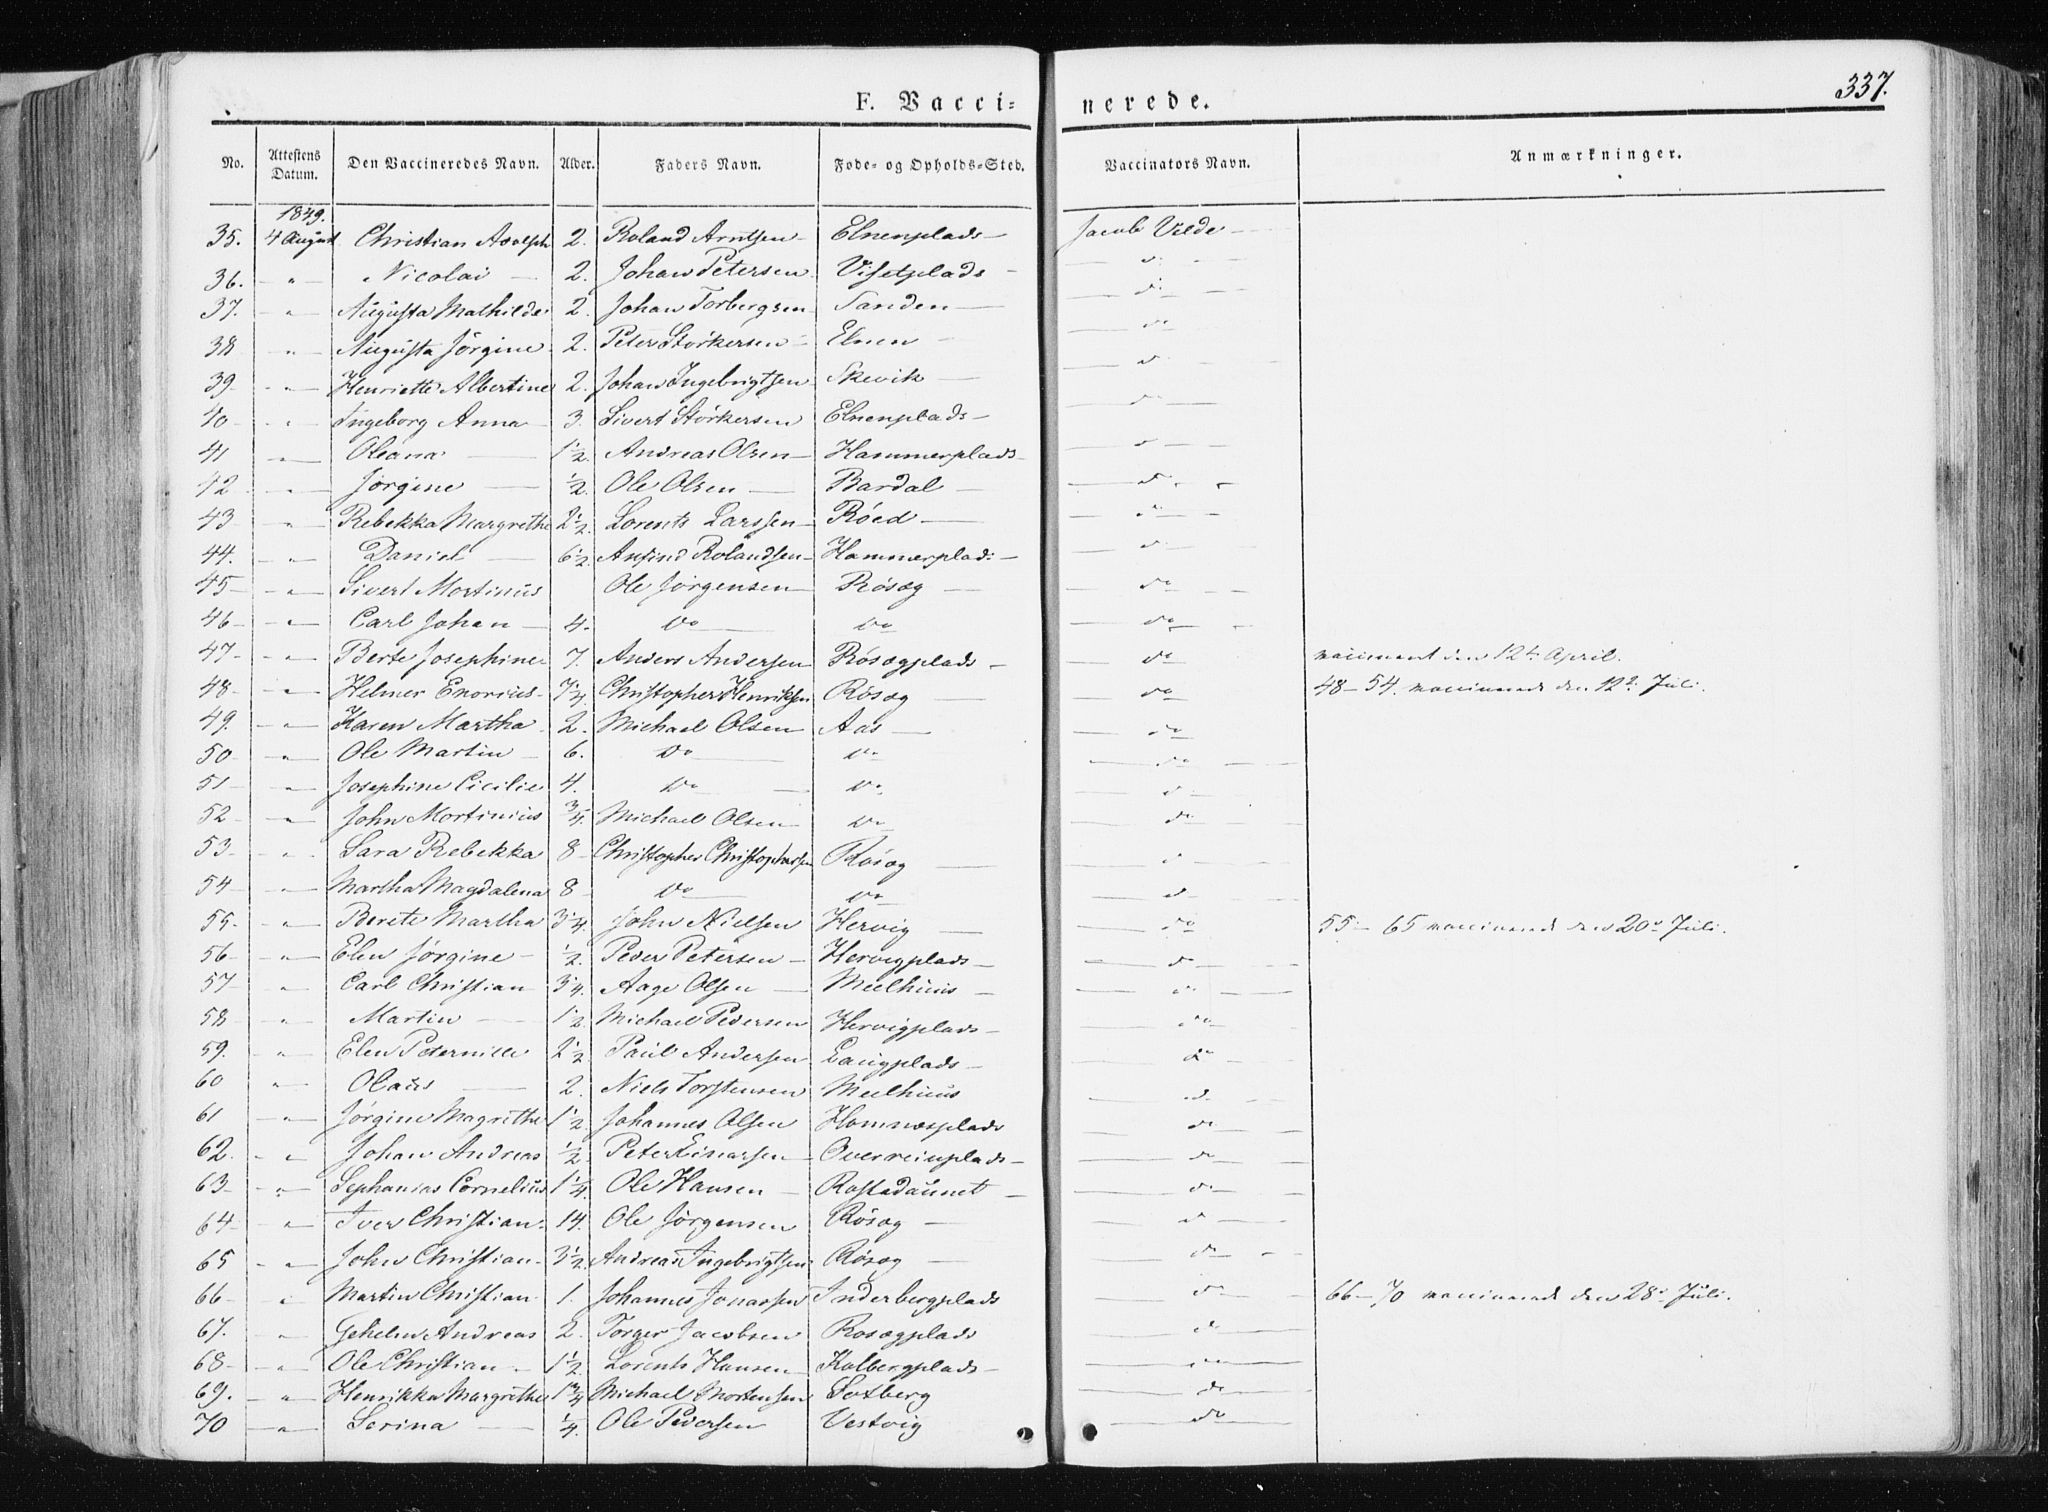 337.
F. Vacci= nerede.
No. Attestens Datum. Den Vaccineredes Navn. Alder. Faders Navn. Føde- og Opholds-Sted. Vaccinators Navn. Anmærkninger.
1849.
35. 4 August Christian Adolph 2. Roland Arntsen Elnenplads Jacob Velde
36. " Nicolai 2. Johan Petersen Visetplads do
37. " Augusta Mathilde 2. Johan Torbergsen Sanden do
38 " Augusta Jørgine 2. Peter Størkersen Elnen do
39 " Henriette Albertine 2. Johan Ingebrigtsen Skevik do
40 " Ingeborg Anna 3. Sivert Størkersen Elnenplads do
41 " Oleana 1 1/2. Andreas Olsen Hammerplads do
42 " Jørgine 1/2. Ole Olsen Bardal do
43 " Rebekka Margrethe 2 1/2. Lorents Larssen Róed do
44. " Daniel 6 1/2 Anfind Rolandsen Hammerplads do
45 " Sivert Mortinus Ole Jørgensen Rósæg do
46 " Carl Johan 4. do do do
47 " Berte Josephine 7. Anders Andersen Rósægplads do vaccineret den 12te April.
48 " Helmer Enorius 7 1/4. Christopher Henriksen Rósæg do 48-54. vaccinerede den 12te Juli.
49. " Karen Martha 2. Michael Olsen Aas do
50 " Ole Martin 6. do do do
51 " Josephine Cicilie 4. do do do
52 " John Mortinius 3/4. Michael Olsen do do
53 " Sara Rebekka 8 Christopher Christophersen Rósæg do
54 " Martha Magdalena 8 do do do
55. " Berete Martha 3 1/4. John Nielsen Hervig do 55-65 vaccinerede den 20de Juli.
56 " Elen Jørgine 1/2. Peder Petersen Hervigplads do
57 " Carl Christian 3/4. Aage Olsen Meelhuus do
58 " Martin 1 1/2 Michael Pedersen Hervigplads do
59. " Elen Peternille 2 1/2. Paul Andersen Laugplads do
60 " Olaus 2. Niels Torstensen Meelhuus do
61 " Jørgine Magrethe 1 1/2 Johannes Olsen Homnæsplads do
62. " Johan Andreas 1/2 Peter Einarsen Overreinplads do
63 " Sephanias Cornelius 1 1/4. Ole Hansen Rostadaunet do
64 " Iver Christian 14. Ole Jørgensen Rósæg do
65 " John Christian 3 1/2 Andreas Ingebrigtsen Rósæg do
66 " Martin Christian 1. Johannes Jonassen Inderbergplads do 66-70 vaccinerede den 28de Juli.
67. " Gehelm Andreas 2. Torger Jacobsen Rosægplads do
68 " Ole Christian 1 1/2. Lorents Hansen Kolbergplads do
69. " Henrikka Margrethe 1 3/4 Michael Mortensen Saxberg do
70 " Serina 1/4. Ole Pedersen Vestvig do